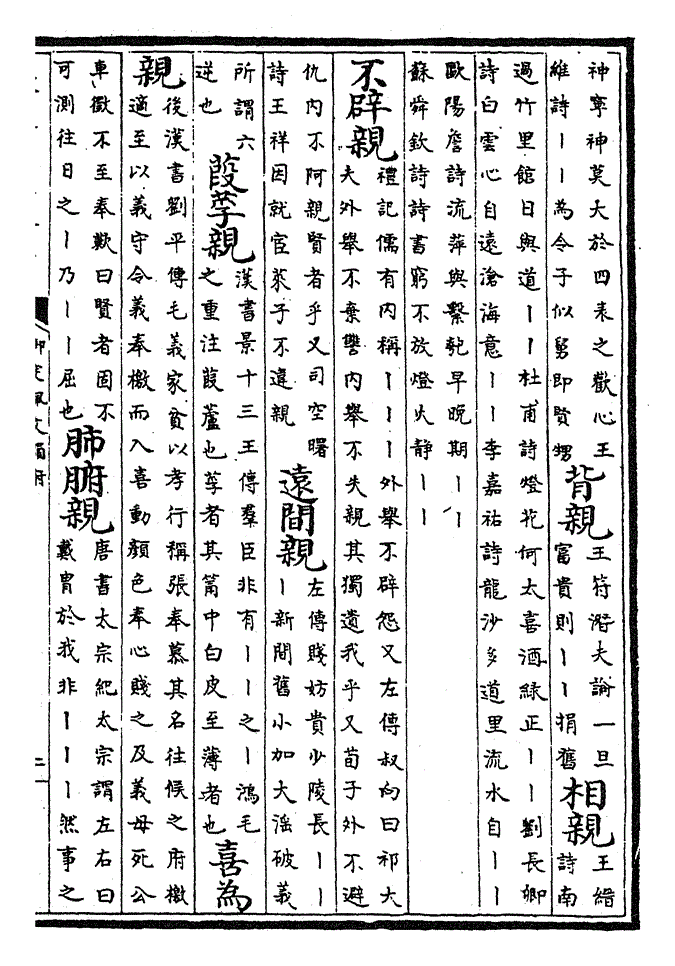 神寧神莫大於四表之歡心王
維詩丨丨為令子似舅即賢甥
背親
王符潛夫論一旦
富貴則丨丨捐舊
相親
王縉
詩南
過竹里館日與道丨丨杜甫詩燈花何太喜酒綠正丨丨劉長卿
詩白雲心自遠滄海意丨丨李嘉祐詩龍沙多道里流水自丨丨
歐陽詹詩流萍與繫匏早晚期丨丨
蘇舜欽詩詩書窮不放燈火静丨丨
不辟親
禮記儒有内稱丨丨丨外舉不辟怨又左傳叔向曰祁大
夫外舉不棄讐内舉不失親其獨遺我乎又荀子外不避
仇内不阿親賢者乎又司空曙
詩王祥因就宦萊子不違親
遠間親
左傳賤妨貴少陵長丨丨
丨新間舊小加大淫破義
所謂六
逆也
葭莩親
漢書景十三王傳羣臣非有丨丨之丨鴻毛
之重注葭蘆也莩者其筩中白皮至薄者也
喜為
親
後漢書劉平傳毛義家貧以孝行稱張奉慕其名往候之府檄
適至以義守令義奉檄而入喜動顔色奉心賤之及義母死公
車徵不至奉歎曰賢者固不
可測往日之丨乃丨丨屈也
肺腑親
唐書太宗紀太宗謂左右曰
戴胄於我非丨丨丨然事之